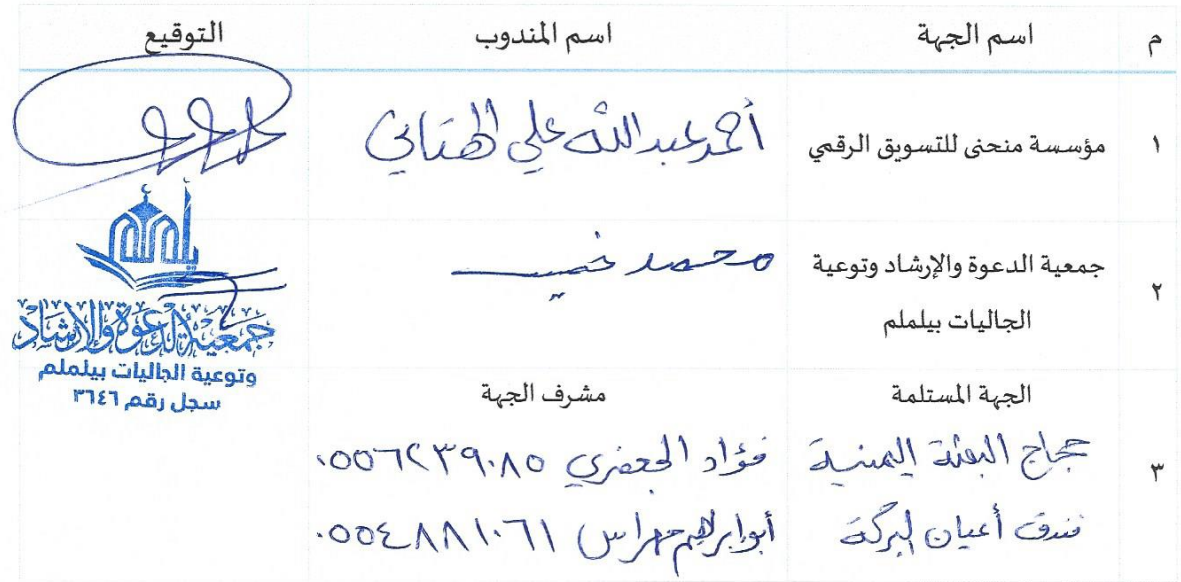 م اسم الجهة اسم المندوب التوقيع
١ مؤسسة منحنى للتسويق الرقمي أحمد عبدالله علي الهتاني
٢ جمعية الدعوة والإرشاد وتوعية الجاليات بيلملم محمد
يلملم
جمعية الدعوة والإرشاد
وتوعية الجاليات بيلملم
سجل رقم ٣٦٤٦
الجهة المستلمة مشرف الجهة
٣ حجاج البعثة اليمنية فؤاد الجعفري ٠٥٥٦٢٣٩٠٨٥
فندق أعيان البركة أبو ابراهيم مهراس ٠٥٥٤٨٨١٠٦١